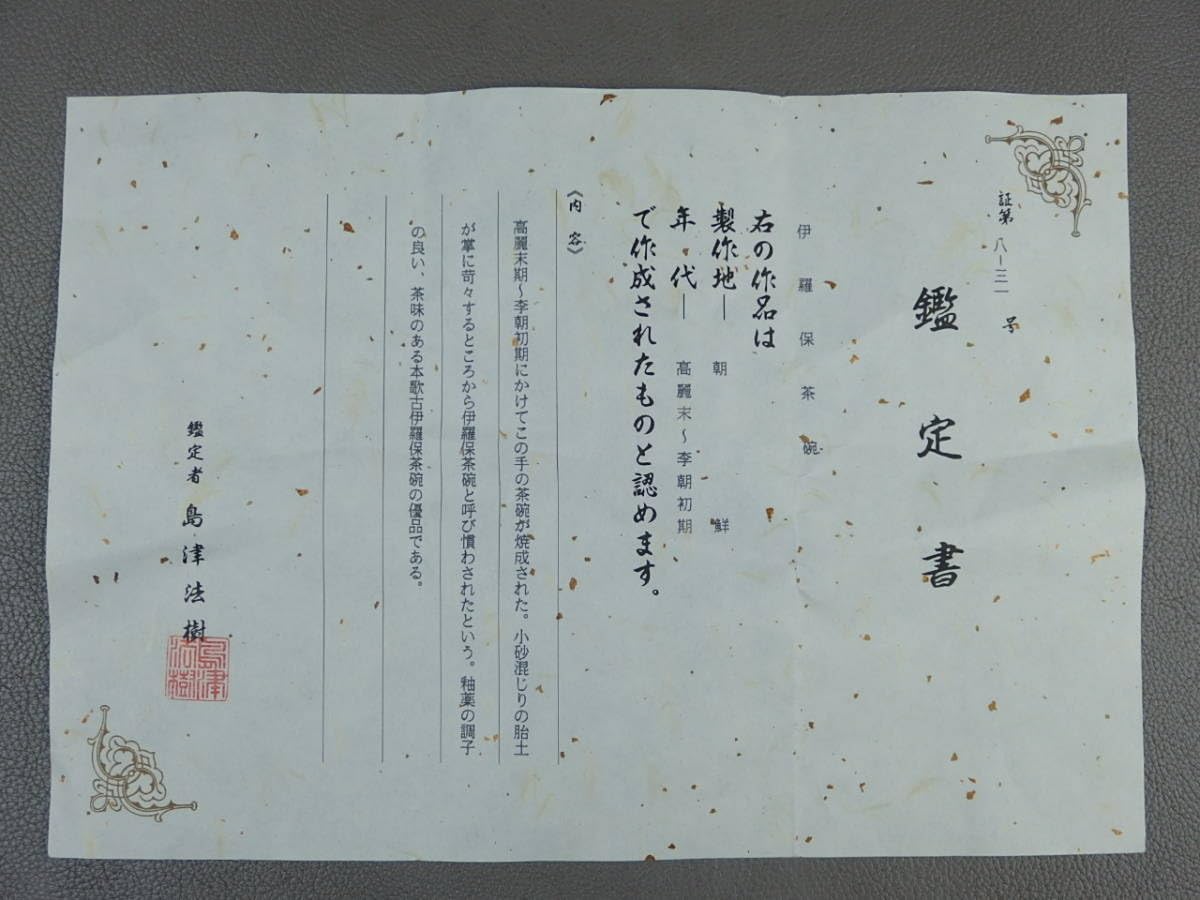 証第 八－三一 号
鑑定書
伊羅保茶碗
右の作品は
製作地― 朝鮮
年代― 高麗末～李朝初期
で作成されたものと認めます。
《内容》
高麗末期～李朝初期にかけてこの手の茶碗が焼成された。小砂混じりの胎土
が掌に苛々するところから伊羅保茶碗と呼び慣わされたという。釉薬の調子
の良い、茶味のある本歌古伊羅保茶碗の優品である。
鑑定者 島津法樹
島津
法樹